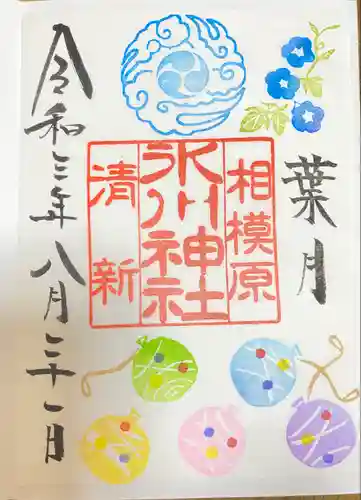 葉月
相模原
氷川神社
清新
令和三年八月三十一日